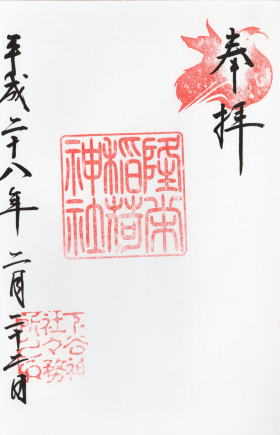 奉拝
隆栄
稲荷
神社
平成二十八年 二月二十二日
下谷神
社々務
所之印